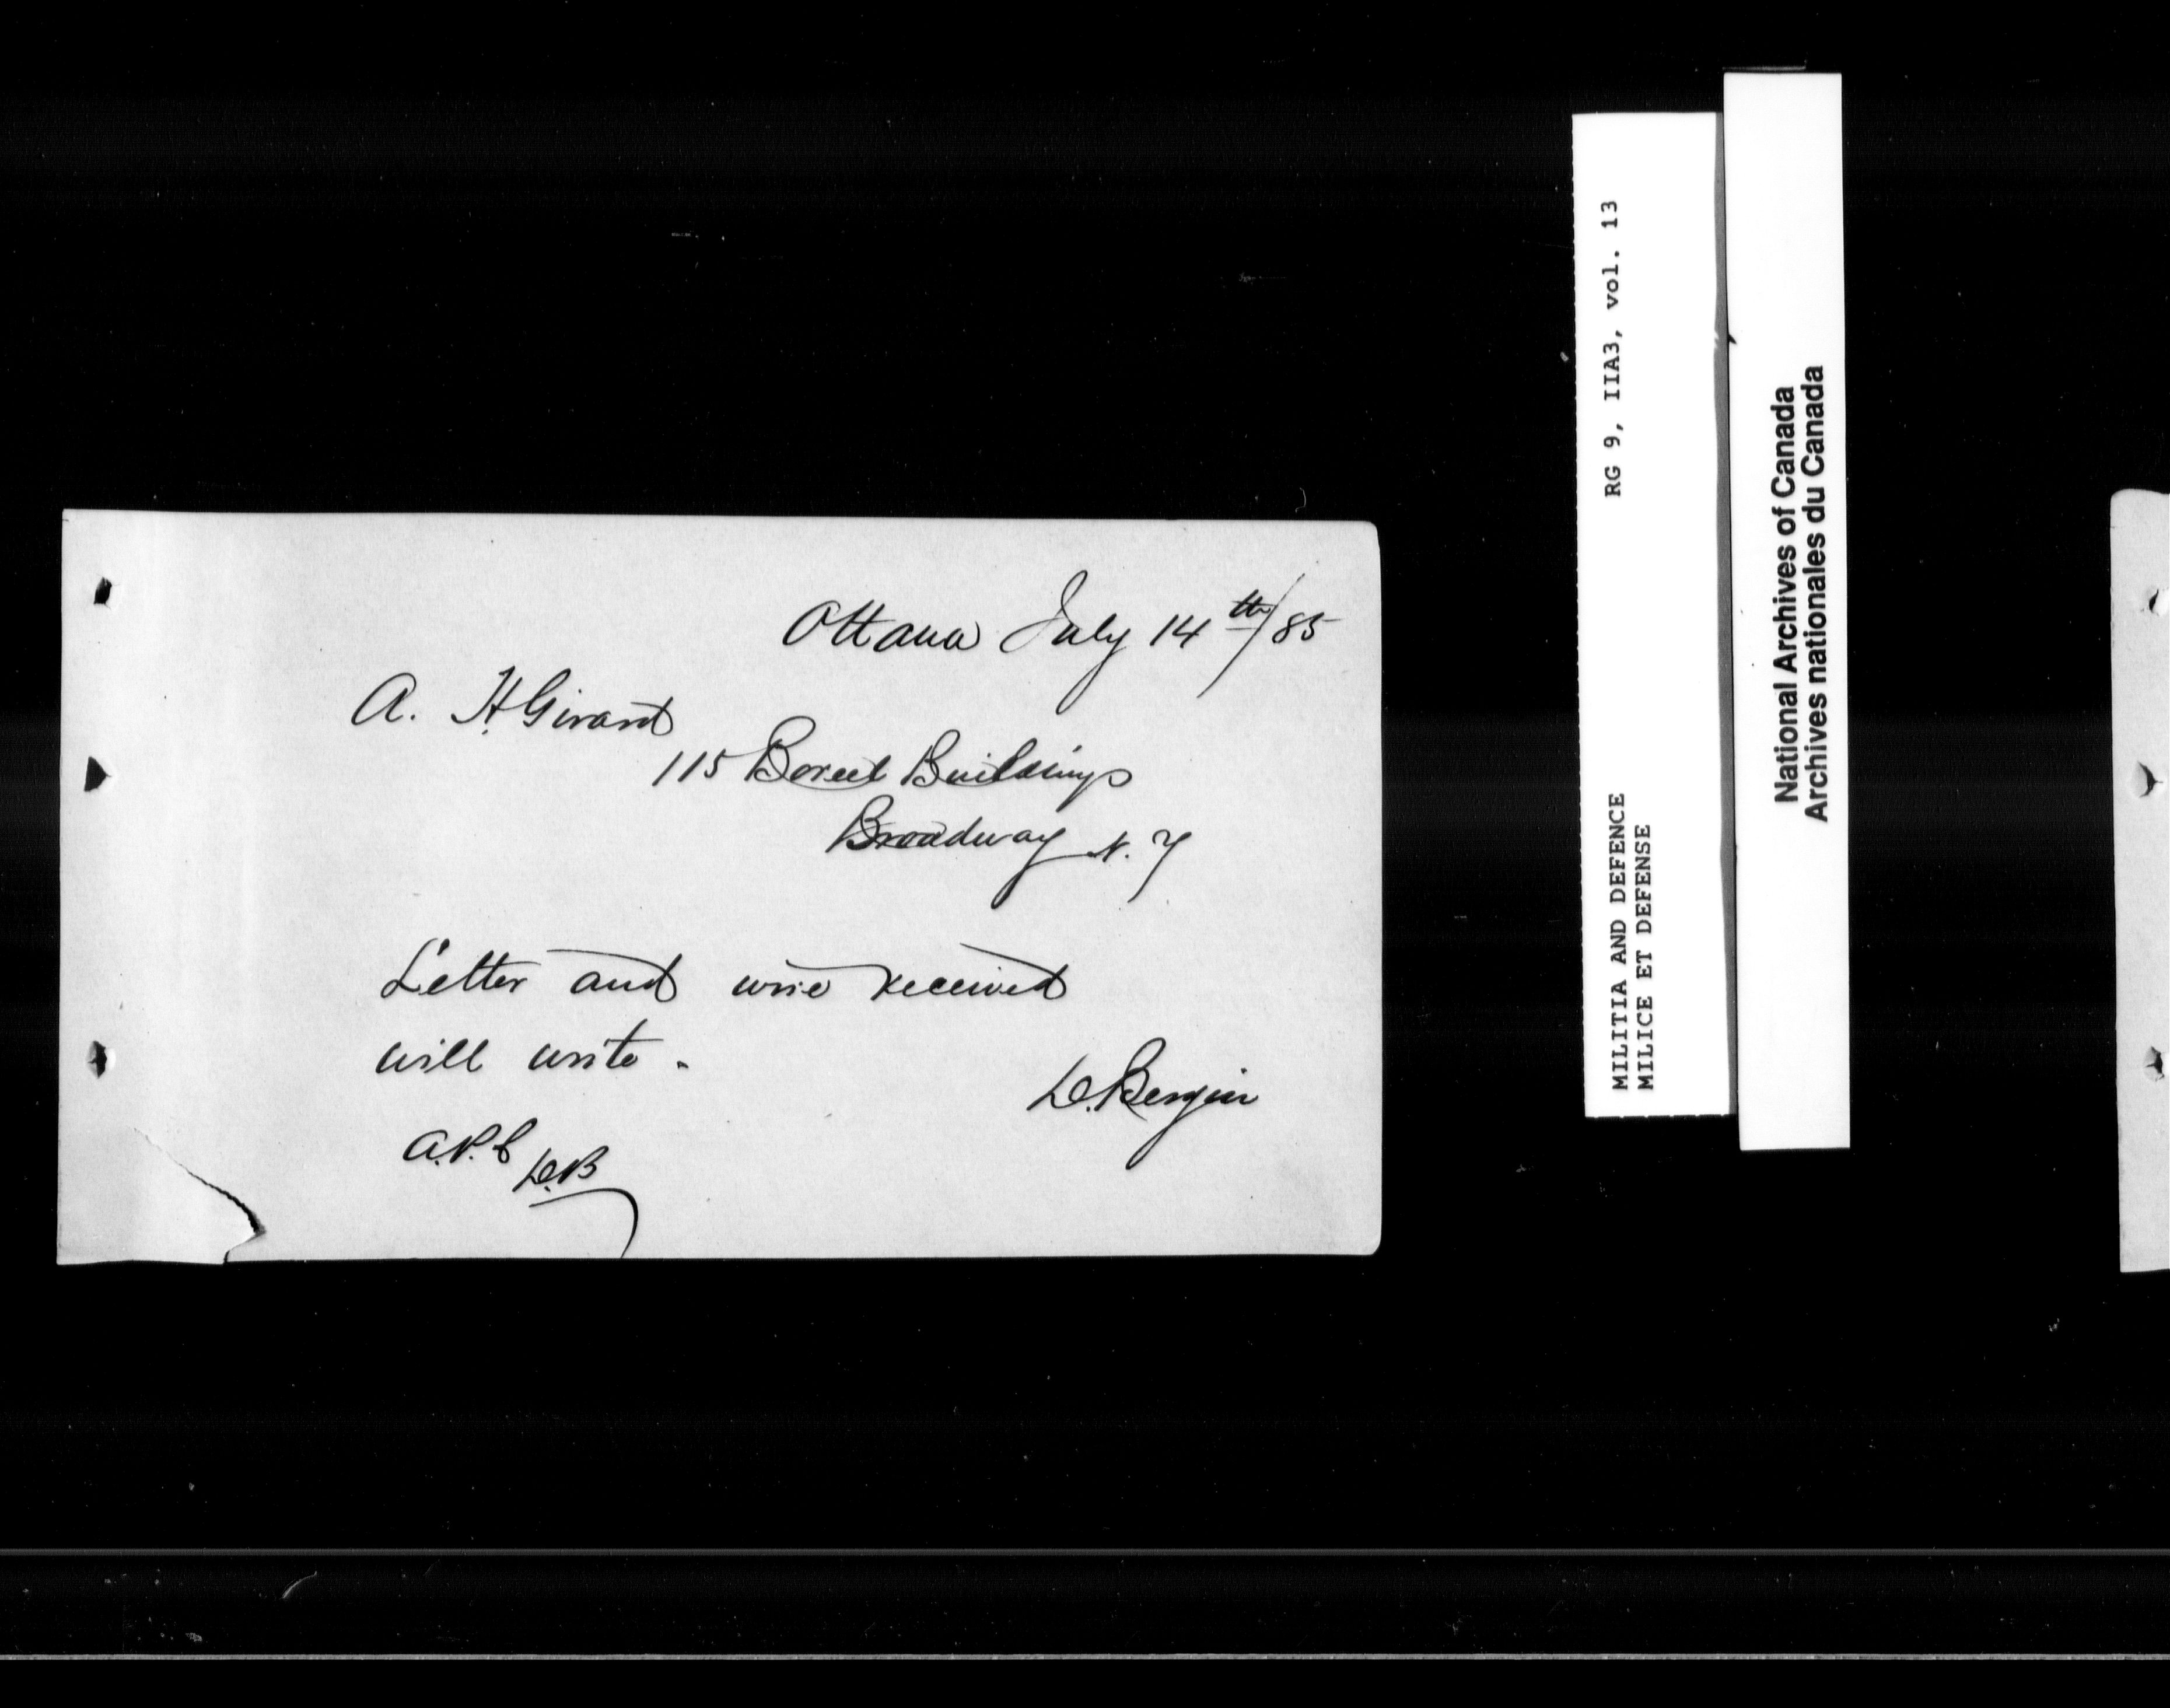 Ottawa July 14th/85
A. H. Girard
115 Boreel Buildings
Broadway N.Y
Letter and wire received
will write.
D. Bergin
D.B
RG 9, IIA3, vol. 13
MILITIA AND DEFENCE
MILICE ET DEFENSE
National Archives of Canada
Archives nationales du Canada